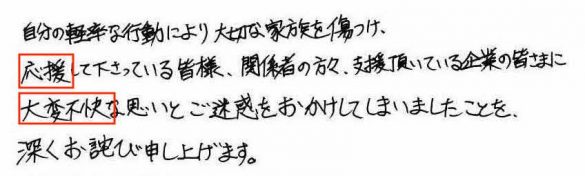 自分の軽率な行動により大切な家族を傷つけ、
応援して下さっている皆様、関係者の方々、支援頂いている企業の皆さまに
大変不快な思いとご迷惑をおかけしてしまいましたことを、
深くお詫び申し上げます。